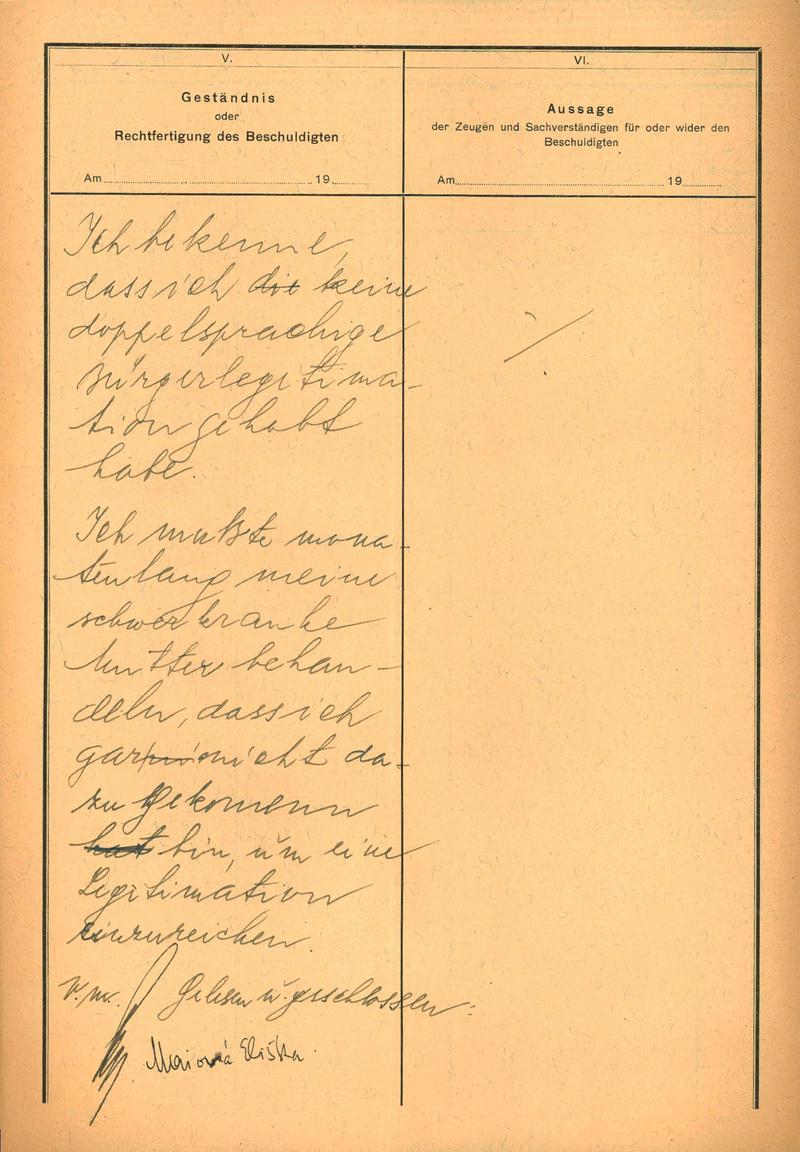 V.
Geständnis
oder
Rechtfertigung des Beschuldigten
Am 19
VI.
Aussage
der Zeugen und Sachverständigen für oder wider den
Beschuldigten
Am 19
Ich bekenne,
dass ich die keine
doppelsprachige
Bürgerlegitima-
tion gehabt
habe.
Ich mußte mona-
tenlang meine
schwerkranke
Mutter behan-
deln, dass ich
gar nicht da-
zu gekomenn
hat bin, um eine
Legitimation
einzureichen.
v. w. Gelesen u. geschlossen:
Maiová Eliška